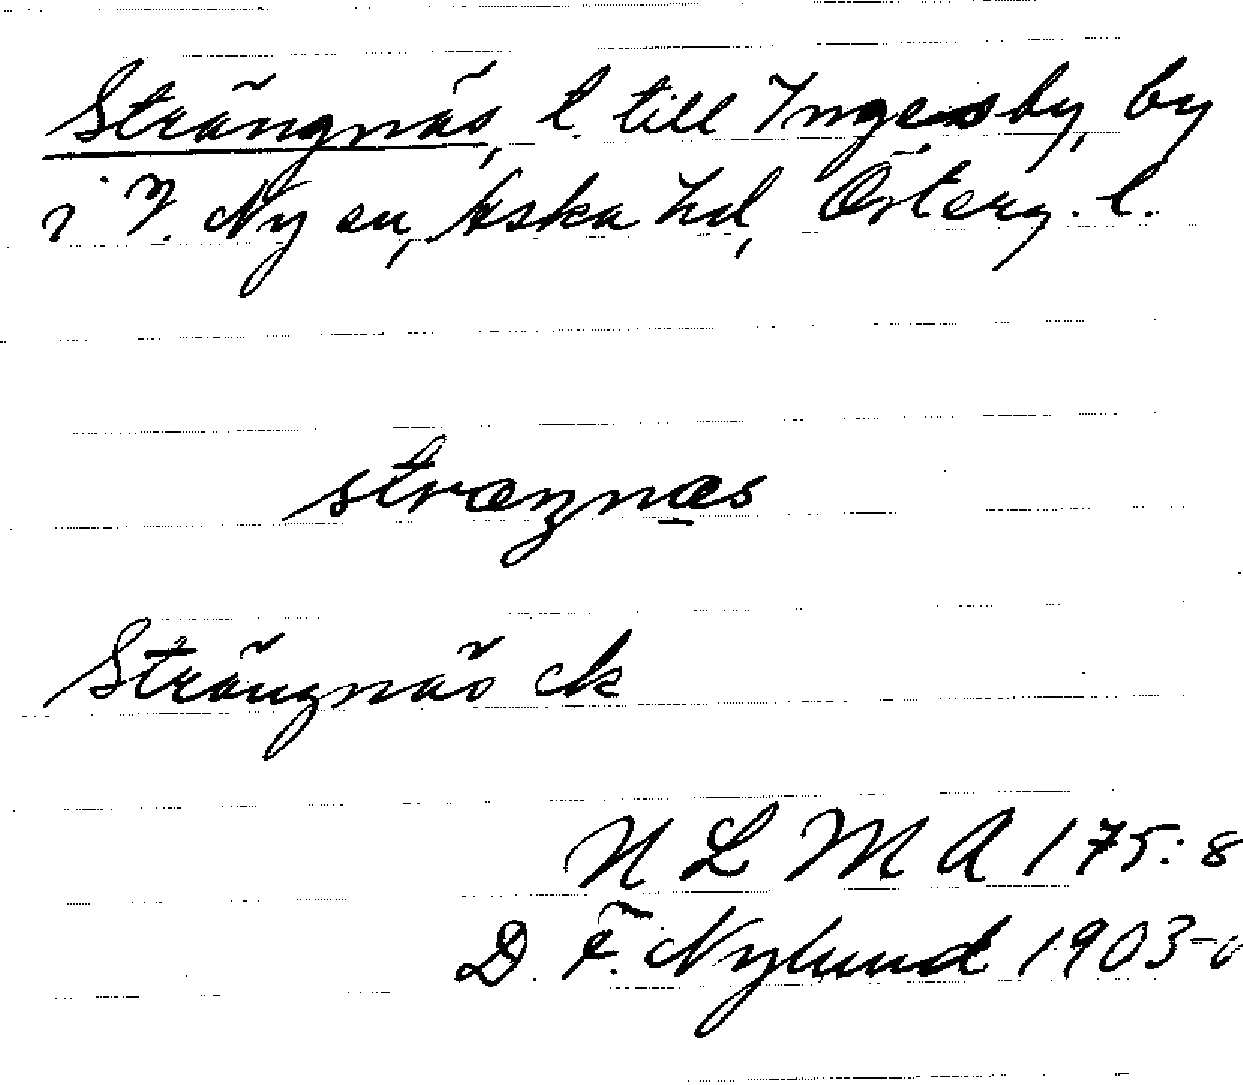 Strängnäs, l. till Ingelsby, by
i V. Ny sn, Aska hd, Österg. l.
stræŋnæs
Strängnäs ck
N L M A 175:8
D. F. Nylund 1903-